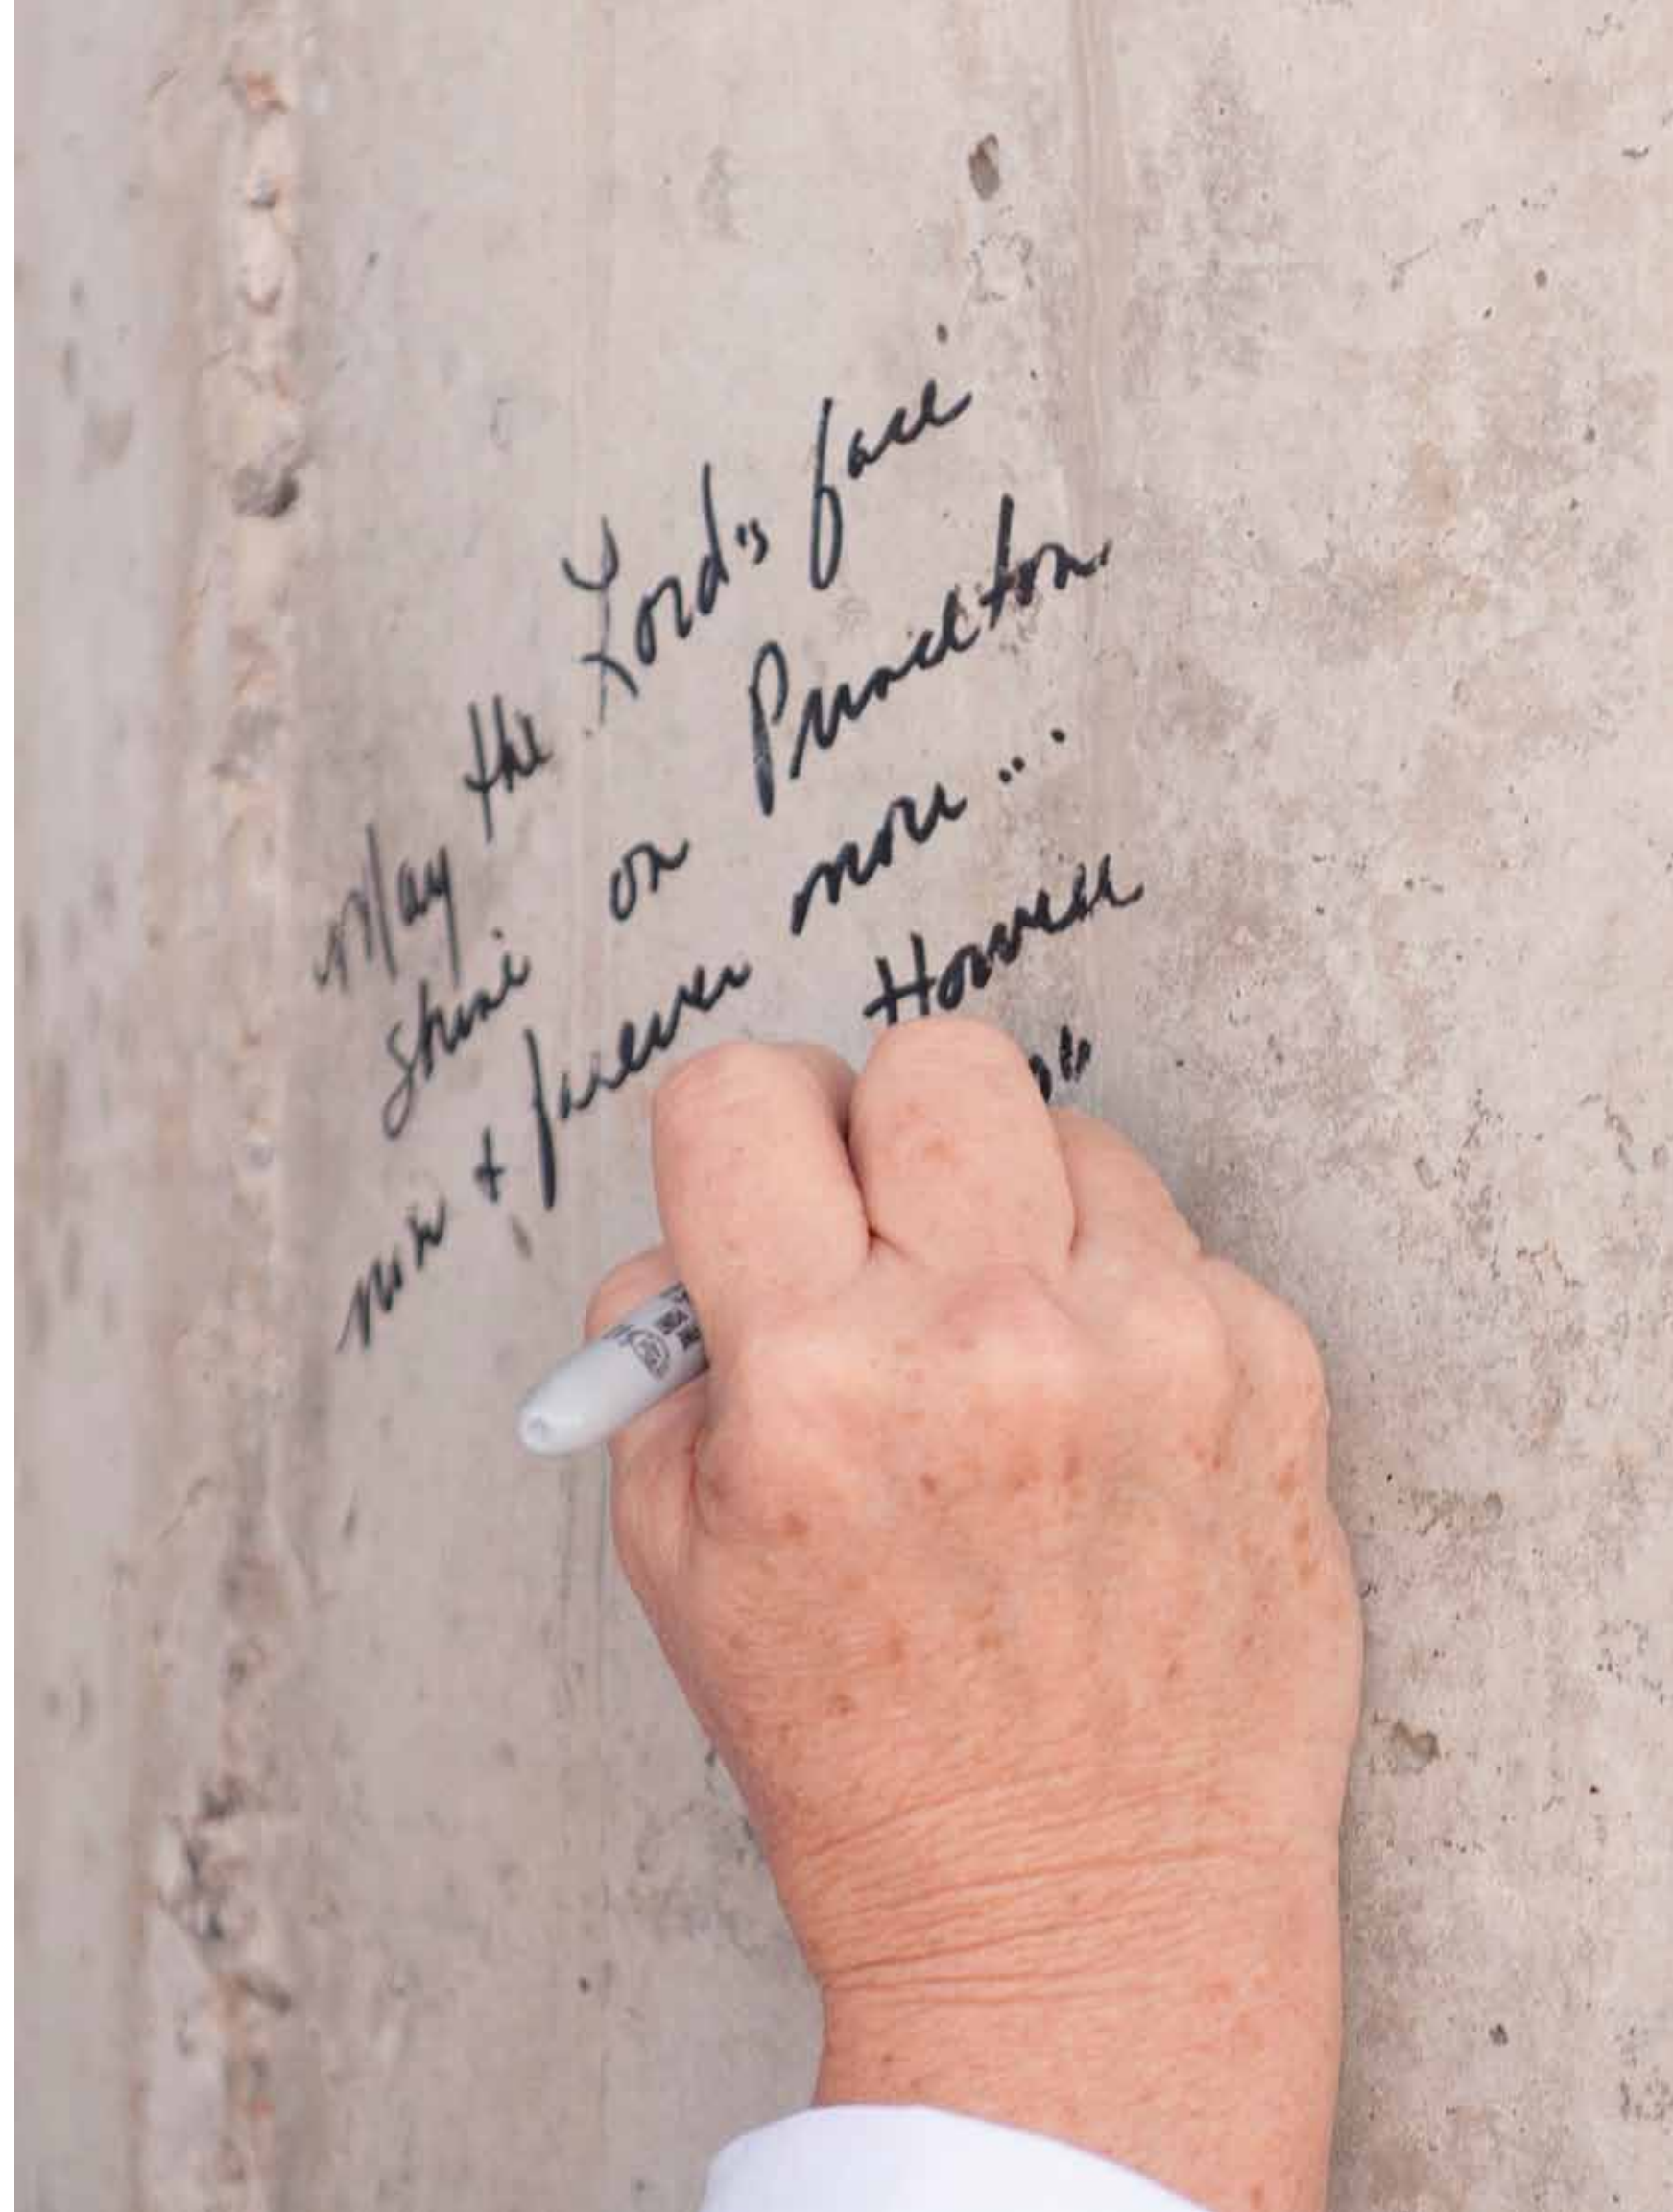 May the Lord's face
shine on Princeton
now + forever more...
Howell